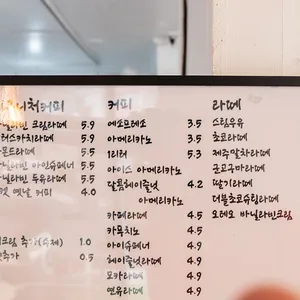 커피
라떼
바닐라빈 크림라떼 5.9
러스카치라떼 5.9
몬드라떼 5.5
닐라빈 아인슈페너 5.5
닐라빈 두유라떼 5.5
옛날 커피 4.0
크림 추가(수제) 1.0
추가 0.5
에스프레소 3.5
아메리카노 3.5
1리터 5.3
아이스 아메리카노
달콤헤이즐넛 4.2
아메리카노
카페라떼 4.5
카푸치노 4.5
아인슈페너 4.9
헤이즐넛라떼 4.9
모카라떼 4.9
연유라떼 4.9
스팀우유
초코라떼
제주말차라떼
군고구마라떼
딸기라떼
더블초코슈팅라떼
오레오 바닐라빈크림